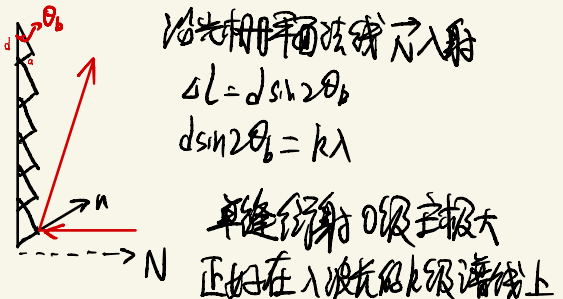 θb
d
a
n
N
沿光栅平面法线 N入射
ΔL=dsin2θb
dsin2θb=kλ
单缝衍射 0级主极大
正好在λ波长的k级谱线上